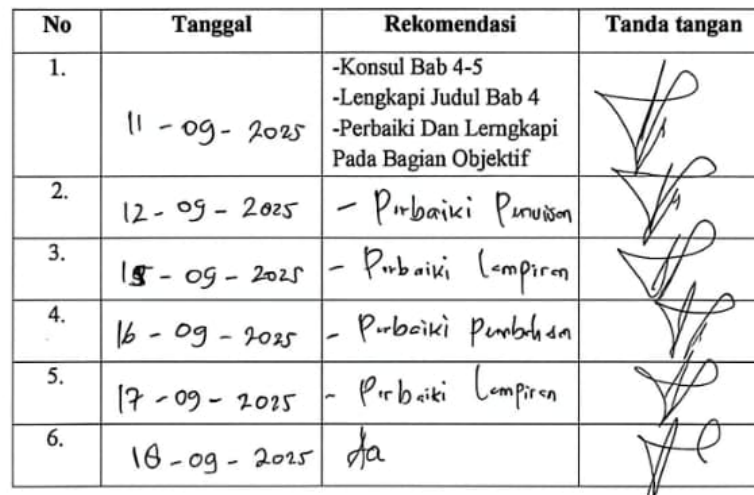 No Tanggal Rekomendasi Tanda tangan
1. 11 - 09 - 2025 -Konsul Bab 4-5
-Lengkapi Judul Bab 4
-Perbaiki Dan Lerngkapi
Pada Bagian Objektif
2. 12 - 09 - 2025 - Perbaiki Penulisan
3. 15 - 09 - 2025 - Perbaiki Lampiran
4. 16 - 09 - 2025 - Perbaiki Pembahasan
5. 17 - 09 - 2025 - Perbaiki Lampiran
6. 18 - 09 - 2025